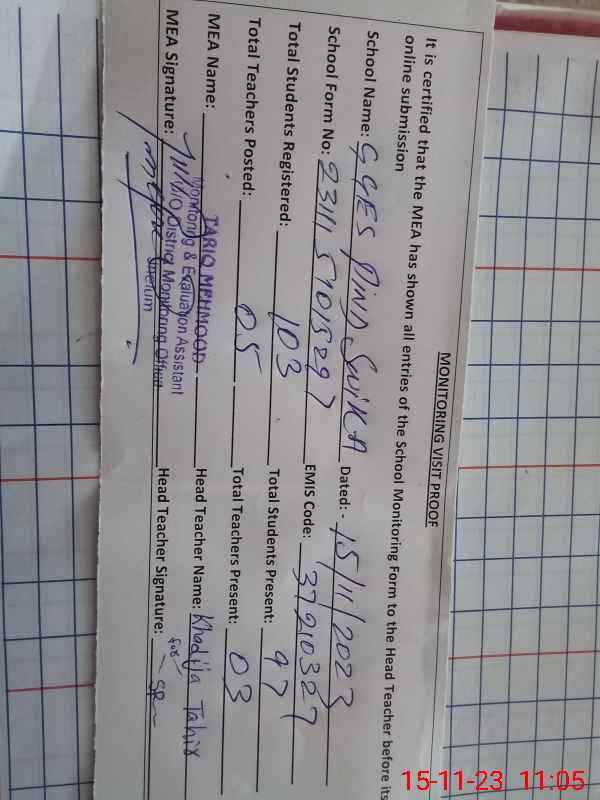 MONITORING VISIT PROOF
It is certified that the MEA has shown all entries of the School Monitoring Form to the Head Teacher before its
online submission
School Name: GGES PIND SWIKA Dated: - 15/11/2023
School Form No: 2311 51015297 EMIS Code: 37210327
Total Students Registered: 103 Total Students Present: 97
Total Teachers Posted: 05 Total Teachers Present: 03
MEA Name: TARIQ MEHMOOD Head Teacher Name: Khadija Tahir
Monitoring & Evaluation Assistant for
MEA Signature: O/O District Monitoring Office Head Teacher Signature:
Jhelum
15-11-23 11:05